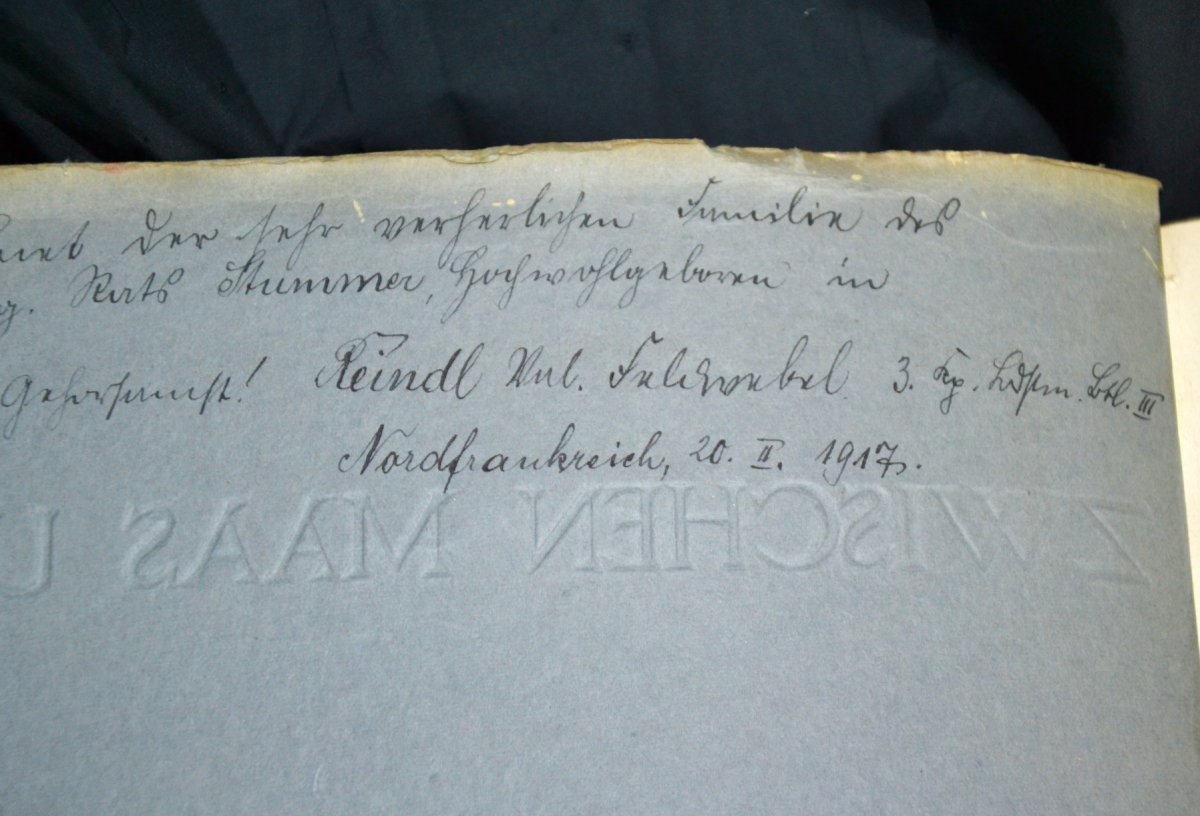 der sehr verherlichen Familie des
Rats Stummer, Hochwohlgeboren in
Gehorsamst! Reindl Val. Feldwebel 3. Kp. Ldstm. Btl. III
Nordfrankreich, 20. II. 1917.
ZWISCHEN MAAS U